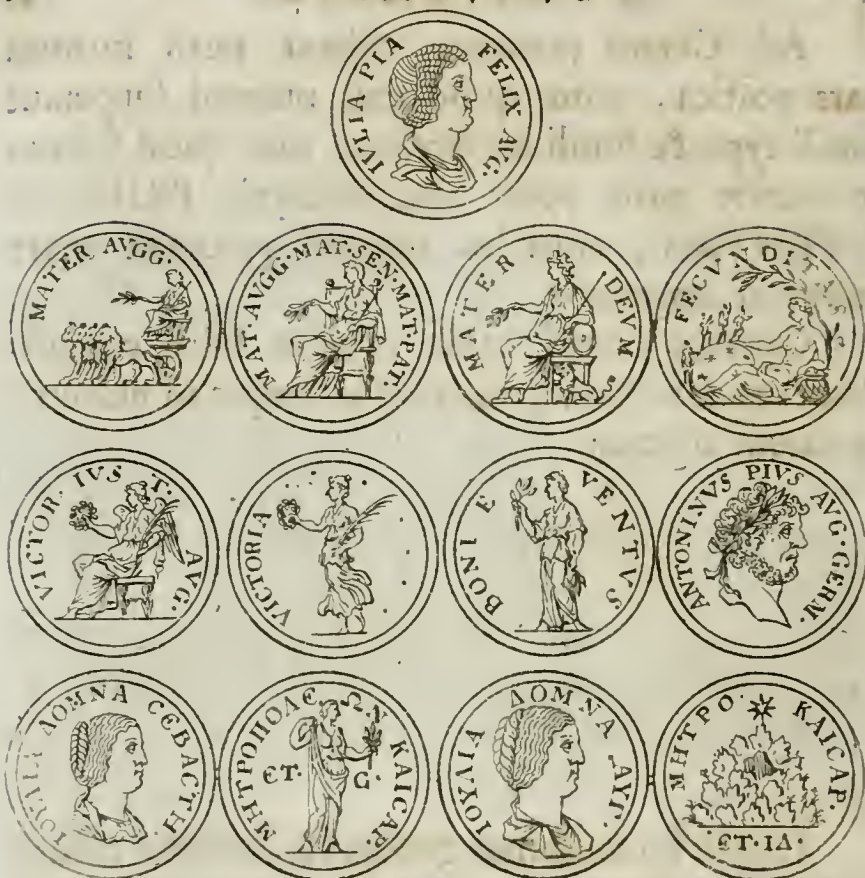 IVLIA PIA FELIX AVG.
MATER AVGG.
MAT·AVGG·MAT·SEN·MAT·PAT.
MATER DEVM
FECVNDITAS
VICTOR·IVST·AVG.
VICTORIA
BONI EVENTVS
ANTONINVS PIVS AVG·GERM.
ΙΟΥΛΙΑ ΔΟΜΝΑ CΕΒΑCΤΗ.
ΜΗΤΡΟΠΟΛΕΩΝ ΚΑΙCΑΡ.
ЄΤ· Ϛ·
ΙΟΥΛΙΑ ΔΟΜΝΑ ΑΥΓ.
ΜΗΤΡΟ· ΚΑΙCΑΡ.
ЄΤ·ΙΔ·